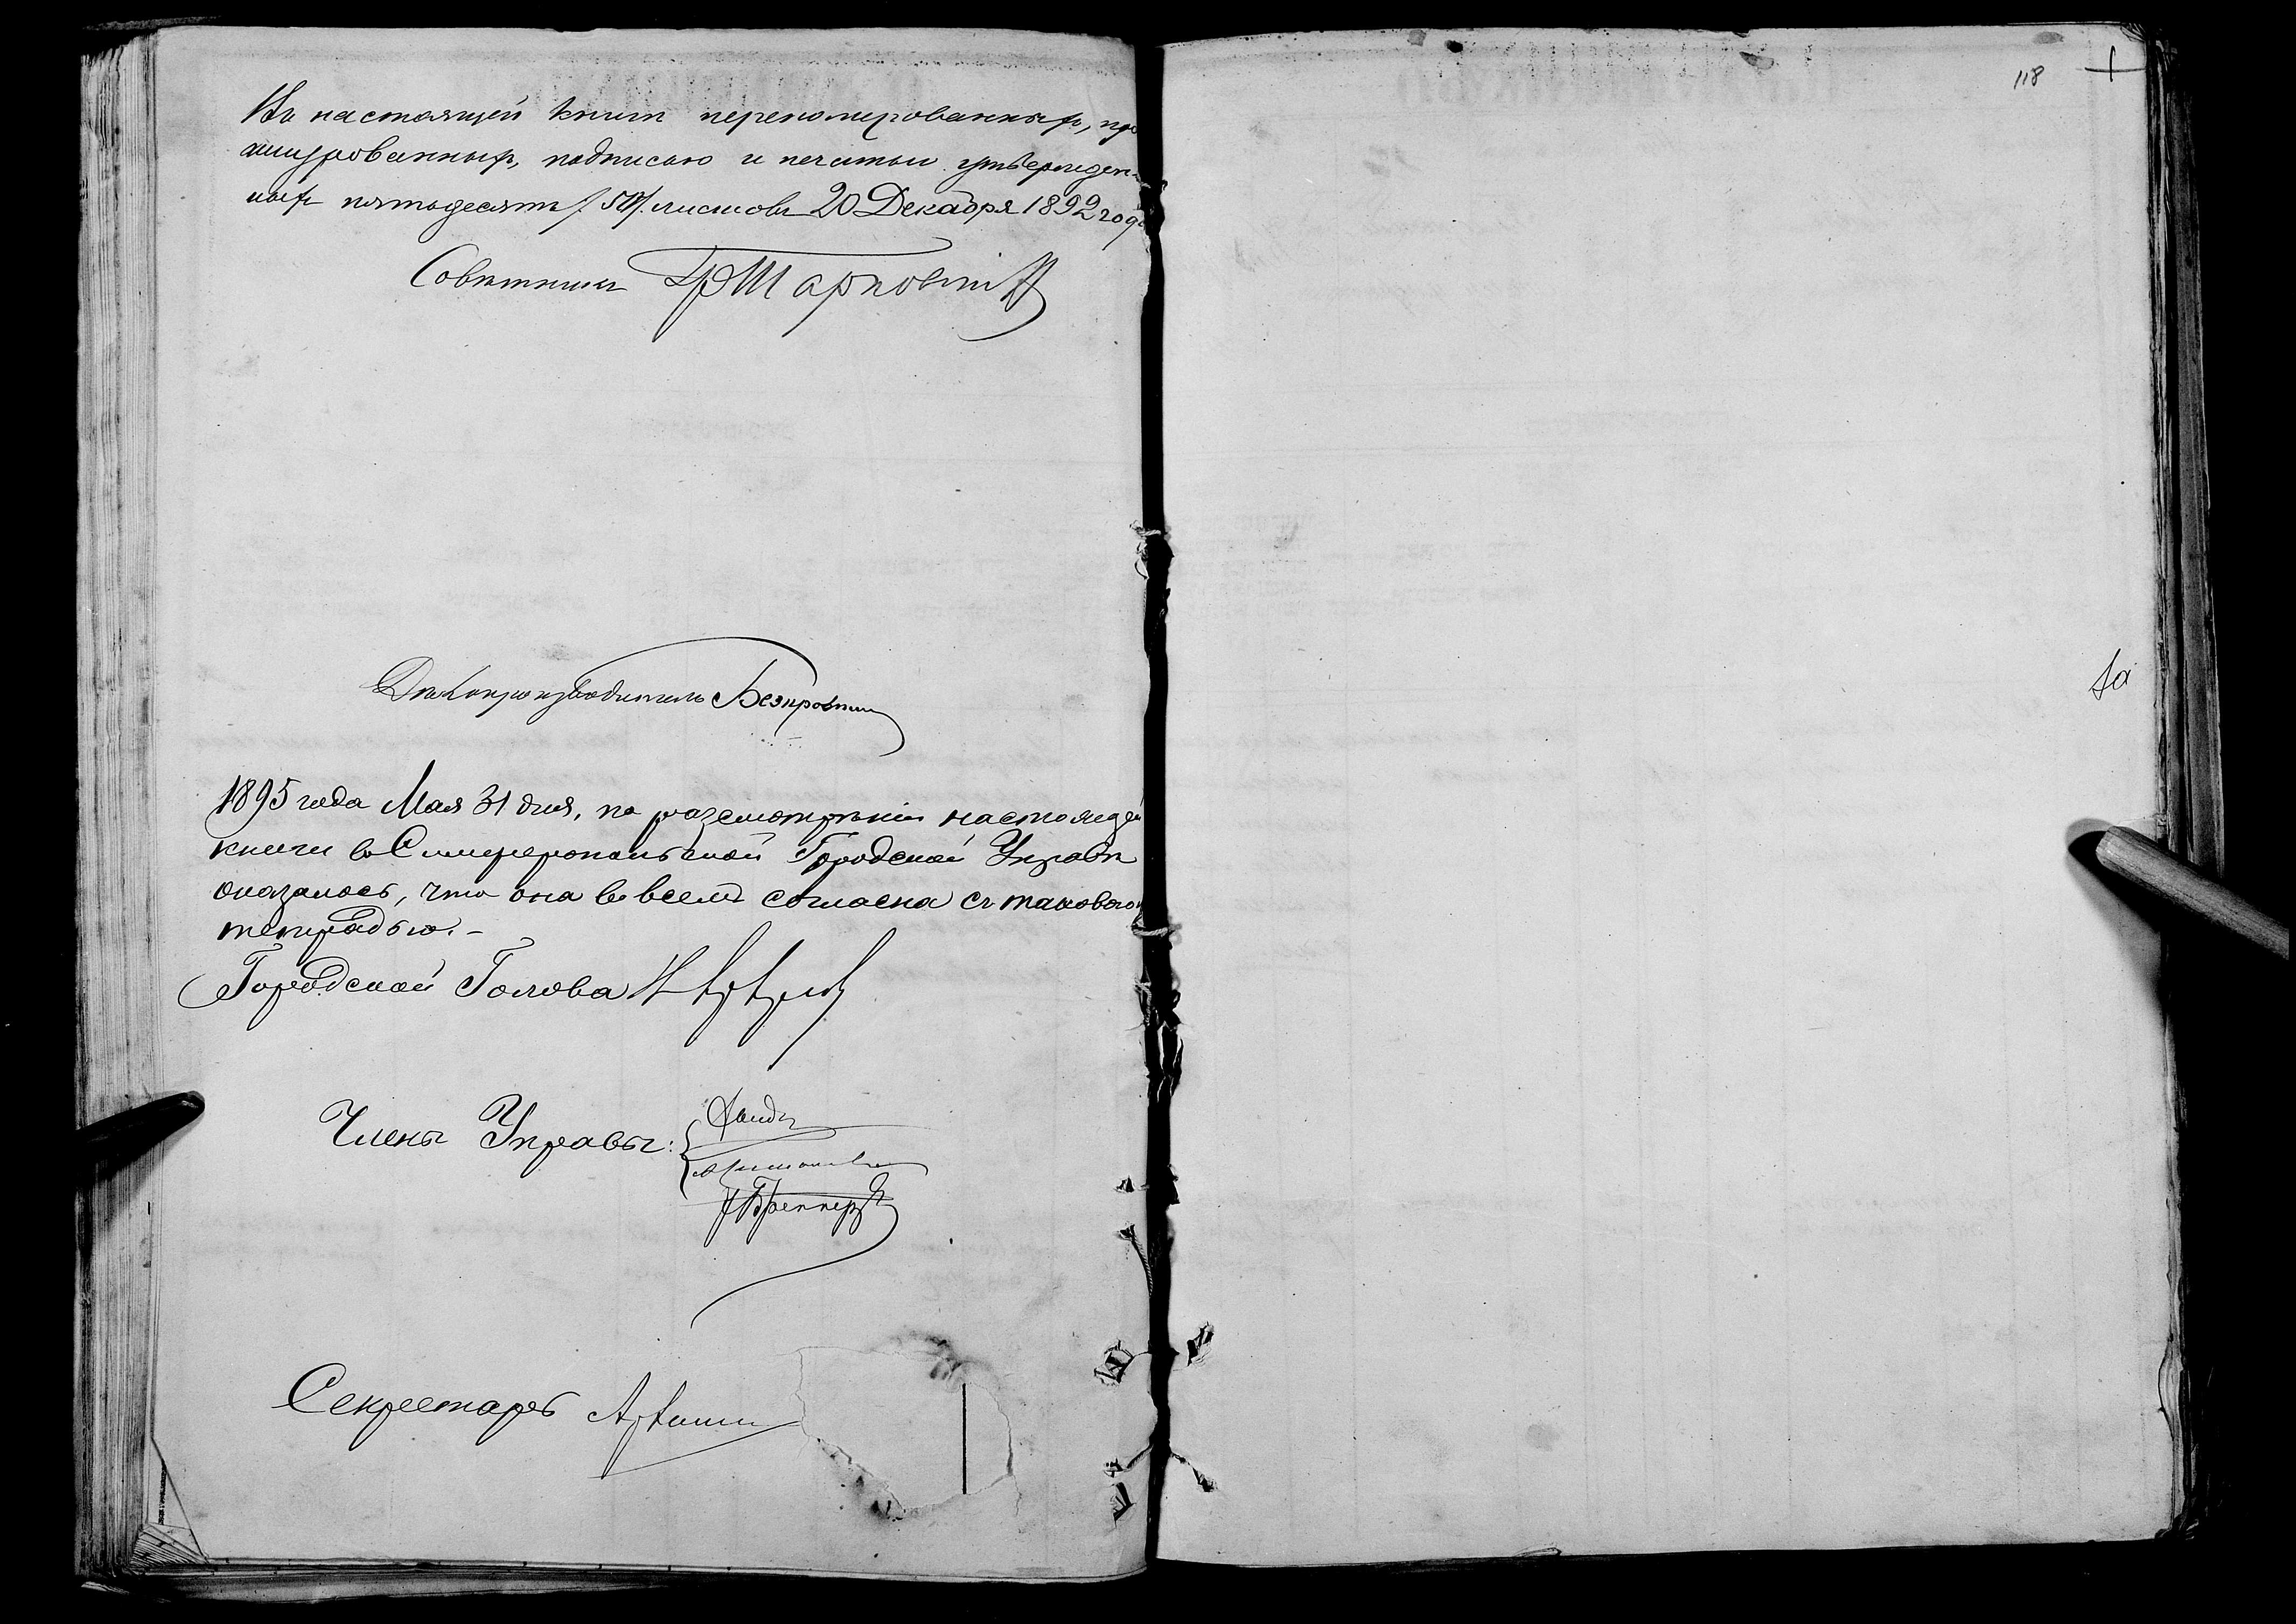 Въ настоящей книгѣ перенумерованныхъ, про
шнурованныхъ, подписью и печатью утвержден-
ныхъ пятьдесятъ /50/ листовъ 20 Декабря 1892 года
Совѣтникъ
Дѣлопроизводитель
1895 года Мая 31 дня, по разсмотрѣніи настоящей
книги въ Симферопольской Городской Управѣ
оказалось, что она во всемъ согласна съ таковою
тетрадью.-
Городской Голова
Члены Управы:
Секретарь
118
1